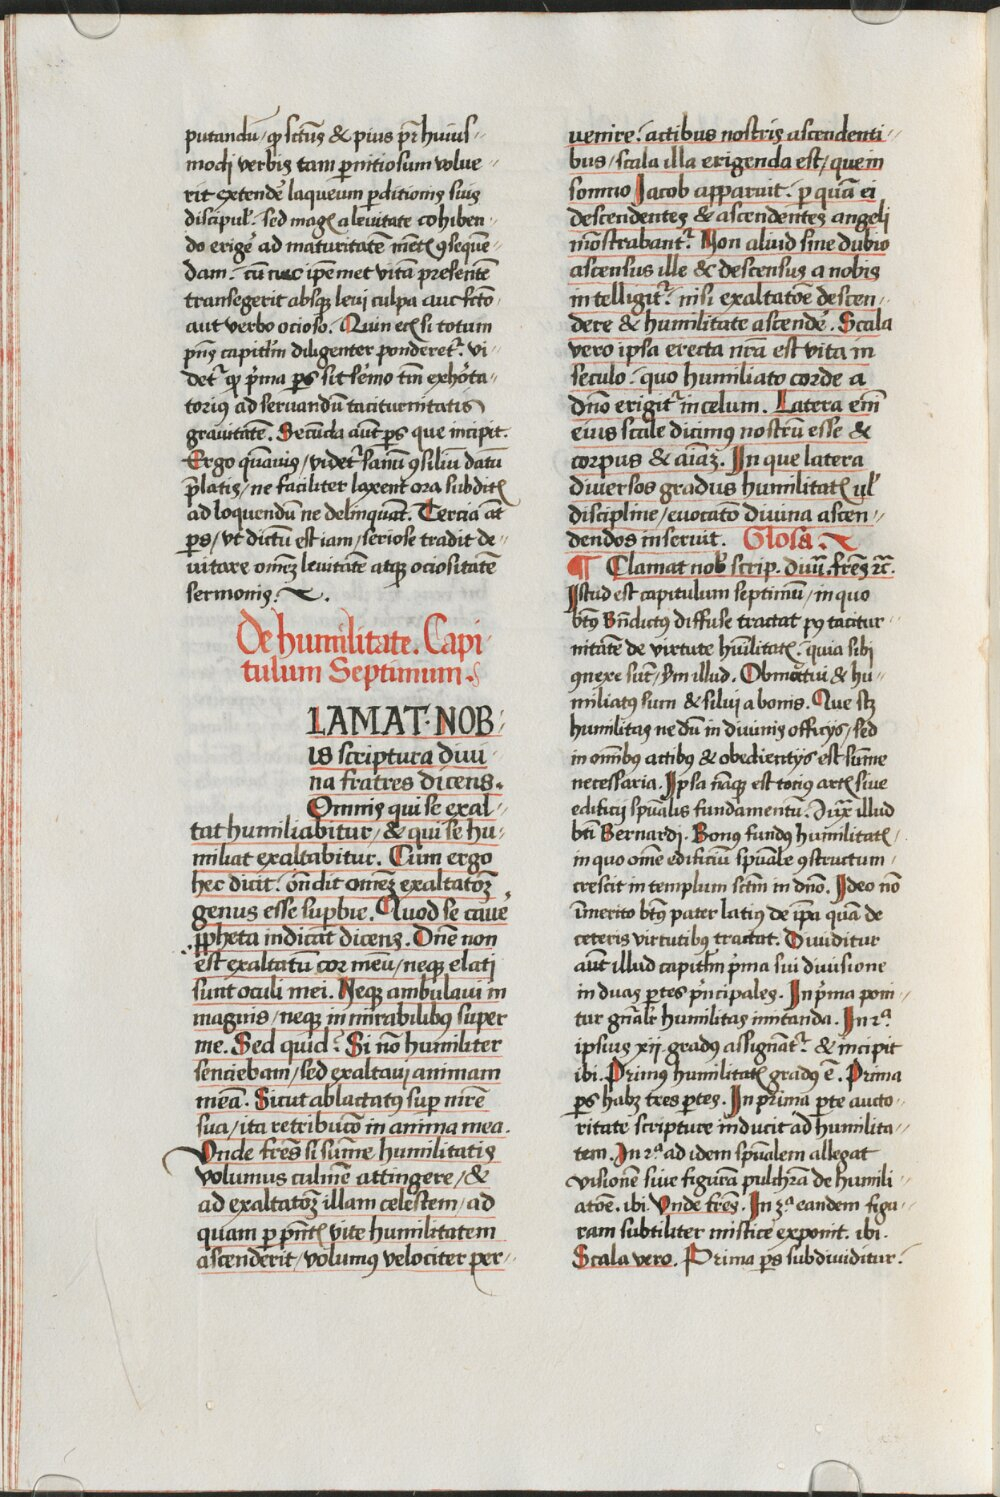 putandū / ꝙ sctūs & pius pr̄ huius
modi verbis tam ꝑnitiosum volue
rit extendē laqueum ꝑditionis suis
discipul̕. sed magꝭ a leuitate cohiben
do erigē ad maturitatē mētꝭ ꝯseque
dam. cū nec ip̄emet vitā presentē
transegerit absqꝫ leui culpa aut scto
aut verbo ocioso. Quin etꝭ si totum
pn̄s capitl̄m diligenter ponderetᷣ. vi
detᷣ ꝙ p̄ma ꝑs sit sermo tm̄ exhorta
torius ad seruandū taciturnitatis
grauitatē. Secunda aūt ꝑs que incipit.
Ergo quāuis / videtᷣ sanū ꝯsiliū datū
p̄latis / ne faciliter laxent ora subditꝭ
ad loquendū ne delinquāt. Tercia āt
ꝑs / vt dictū est iam / seriose tradit de
uitare omēꝫ leuitatē atqꝫ ociositatē
sermonis.
De humilitate. Capi
tulum Septimum.
LAMAT·NOB
is scriptura diui
na fratres dicens.
Omnis qui se exal
tat humiliabitur / & qui se hu
miliat exaltabitur. Cum ergo
hec dicit. on̄dit omēꝫ exaltatōꝫ
genus esse suꝑbie. Quod se cauē
ꝓpheta indicat dicens. Dn̄e non
est exaltatū cor meū / neqꝫ elati
sunt oculi mei. Neqꝫ ambulaui in
magnis / neqꝫ in mirabilibus super
me. Sed quid? Si nō humiliter
sentiebam / sed exaltaui animam
meā. Sicut ablactatus sup mr̄e
sua / ita retribuco in anima mea.
Vnde fr̄es si sum̄e humilitatis
volumus culmē attingere / &
ad exaltatōꝫ illam celestem / ad
quam ꝑ pn̄tꝭ vite humilitatem
ascenderit / volumus velociter per
uenire. actibus nostris ascendenti
bus / scala illa erigenda est / que in
somno Jacob apparuit. ꝑ quā ei
descendentes & ascendentes angeli
mōstrabantᷣ. Non aliud sine dubio
ascensus ille & descensus a nobis
intelligitᷣ. nisi exaltatōe descen
dere & humilitate ascendē. Scala
vero ipsa erecta nr̄a est vita in
seculo. quo humiliato corde a
dn̄o erigitᷣ in celum. Latera em̄
eius scale dicimus nostrū esse &
corpus & aīaꝫ. In que latera
diuersos gradus humilitatꝭ ul̕
discipline / euocatō diuina ascen
dendos inseruit. Glosa.
¶ Clamat nob̕ scrip. diuī. fr̄es ꝛc̄.
Istud est capitulum septimū / in quo
bt̄us Bn̄dictus diffuse tractat pꝰ tacitur
nitatē de virtute hūilitatꝭ. quia sibi
ꝯnexe sūt / ẜm illud. Obmutui & hu
miliatus sum & silui a bonis. Que sꝫ
humilitas ne dū in diuinis officijs / sed
in omībus actibus & obedientijs est sum̄e
necessaria. Ipsa nāqꝫ est totius artꝭ siue
edificij spūalis fundamentū. Iux̄ illud
bt̄i Bernardi. Bonus fundus humilitatꝭ
in quo omē edificiū spūale ꝯstructum
crescit in templum sctm̄ in dn̄o. Ideo nō
īmerito bt̄us pater latius de ip̄a quā de
ceteris virtutibus tractat. Diuiditur
aūt illud capitl̄m p̄ma sui diuisione
in duas ꝑtes p̄ncipales. In p̄ma poni
tur gn̄al̕r humilitas imitanda. In 2ᵃ
ipsius xij gradus assignātᷣ. & incipit
ibi. Primus humilitatꝭ gradus ē. Prima
ꝑs habꝫ tres ꝑtes. In prima ꝑte aucto
ritate scripture inducit ad humilita
tem. In 2ᵃ ad idem spūalem allegat
visionē siue figurā pulchrā de humili
atōe. ibi. Vnde fr̄es. In 3ᵃ eandem figu
ram subtiliter mistice exponit. ibi.
Scala vero. Prima ꝑs subdiuiditur.